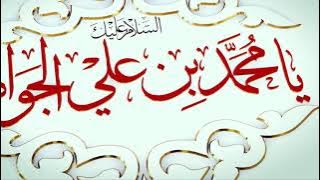 السلام عليك
يا محمد بن علي الجواد